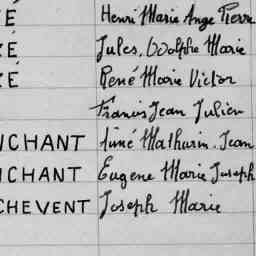 É Henri Marie Ange Pierre
É Jules, Adolphe Marie
É René Marie Victor
Francis Jean Julien
CHANT Aimé Mathurin Jean
CHANT Eugene Marie Joseph
CHEVENT Joseph Marie